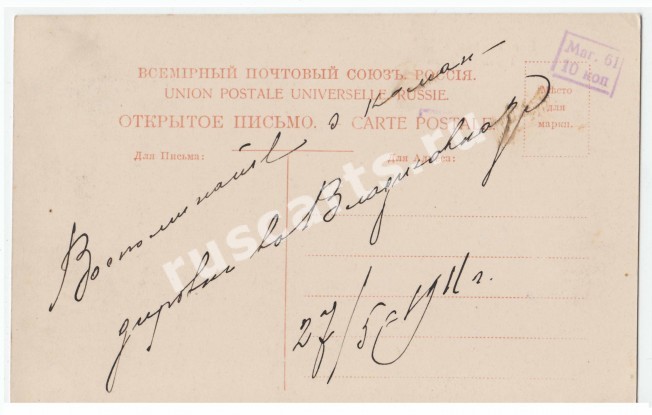 Маг. 61
10 коп
ВСЕМІРНЫЙ ПОЧТОВЫЙ СОЮЗЪ. РОССІЯ.
UNION POSTALE UNIVERSELLE. RUSSIE.
ОТКРЫТОЕ ПИСЬМО. CARTE POSTALE
Мѣсто
для
марки.
Для Письма:
Для Адреса:
о коман-
во Владикавказ
27/5 1911 г.
ruscarts.ru